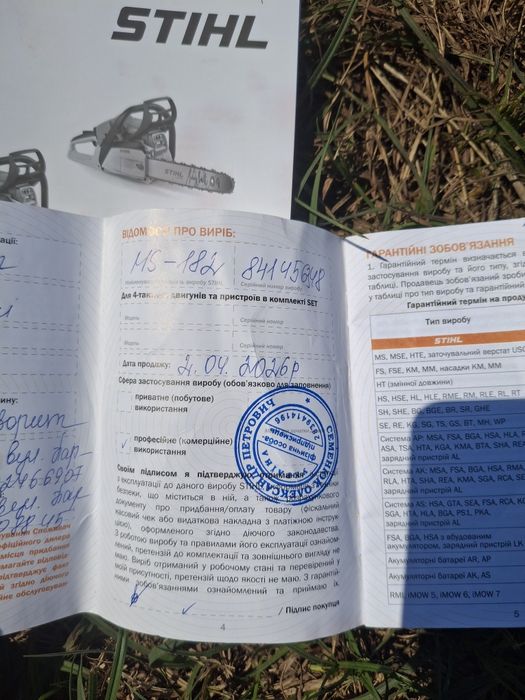 STIHL
STIHL
ВІДОМОСТІ ПРО ВИРІБ:
MS-182 84145648
Серійний номер виробу
Для 4-тактних двигунів та пристроїв в комплекті SET
Модель Серійний номер
Модель Серійний номер
Дата продажу: 2.04.2026р
Сфера застосування виробу (обов'язково для заповнення)
приватне (побутове)
використання
✓ професійне (комерційне)
використання
СЕМЕНЮК ОЛЕКСАНДР ПЕТРОВИЧ
фізична особа-
підприємець
УКРАЇНА
Своїм підписом я підтверджую
з експлуатації до даного виробу STIHL
безпеки, що міститься в ній, а також
документу про придбання/оплату товару (фіскальний
касовий чек або видаткова накладна з платіжною інструк
цією), оформленого згідно діючого законодавства.
З роботою виробу та правилами його експлуатації ознайом
лений, претензій до комплектації та зовнішнього вигляду не
маю. Виріб отриманий у робочому стані та перевірений у
моїй присутності, претензій щодо якості не маю. З гарантій-
ними зобов'язаннями ознайомлений та приймаю їх.
/ Підпис покупця
4
ГАРАНТІЙНІ ЗОБОВ'ЯЗАННЯ
1. Гарантійний термін визначається в
застосування виробу та його типу, згід
таблиці. Продавець зобов'язаний зроб
у таблиці про тип виробу та гарантійний
Гарантійний термін на прода
Тип виробу
STIHL
MS, MSE, HTE, заточувальний верстат USG
FS, FSE, KM, MM, насадки KM, MM
HT (змінної довжини)
HS, HSE, HL, HLE, RME, RM, RLE, RL, RT,
SH, SHE, BG, BGE, BR, SR, GHE
SE, RE, KG, SG, TS, GS, BT, MH, WP
Система AP: MSA, FSA, BGA, HSA, HLA,
ASA, TSA, HTA, KGA, KMA, BTA, SHA, REA
зарядний пристрій AL
Система AK: MSA, FSA, BGA, HSA, HLA, RMA,
RLA, HTA, SHA, REA, KMA, SGA, RCA, SEA
зарядний пристрій AL
Система AS: HSA, GTA, SEA, FSA, RCA, KGA
SGA, HTA, HLA, BGA, PS1, PKA,
зарядний пристрій AL
FSA, BGA, HSA з вбудованим
акумулятором, зарядний пристрій LK
Акумуляторні батареї AR, AP
Акумуляторні батареї AK, AS
RMI, iMOW 5, iMOW 6, iMOW 7
5